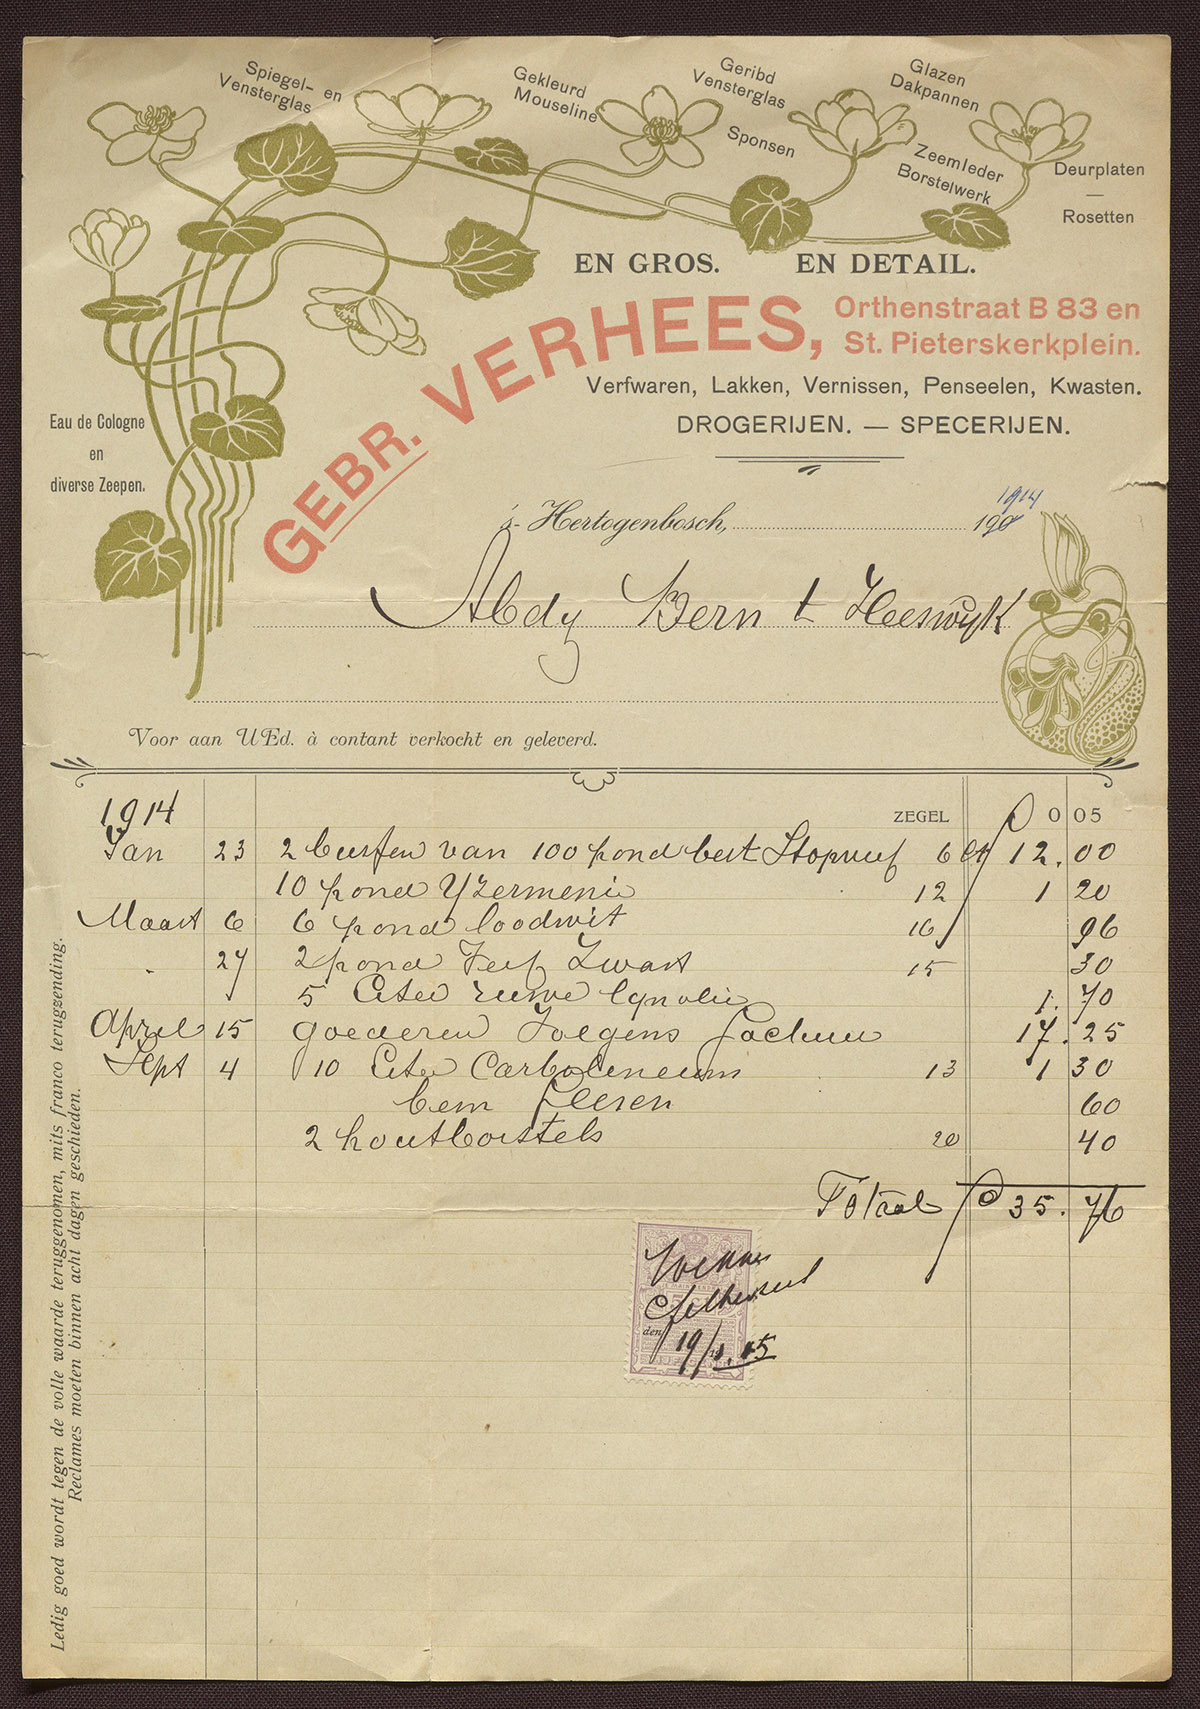 Spiegel- en
Vensterglas
Gekleurd
Mouseline
Geribd
Vensterglas
Sponsen
Glazen
Dakpannen
Zeemleder
Borstelwerk
Deurplaten
—
Rosetten
EN GROS. EN DETAIL.
GEBR. VERHEES,
Orthenstraat B 83 en
St. Pieterskerkplein.
Verfwaren, Lakken, Vernissen, Penseelen, Kwasten.
DROGERIJEN. — SPECERIJEN.
Eau de Cologne
en
diverse Zeepen.
's-Hertogenbosch, 190 1914
Abdy Bern t Heeswyk
Voor aan UEd. à contant verkocht en geleverd.
1914 ZEGEL ƒ 0 05
Jan 23 2 bussen van 100 pond best Stopverf 6 ct 12.00
10 pond Yzermenie 12 1 20
Maart 6 6 pond loodwit 16 96
27 2 pond Verf Zwart 15 30
5 Liter ruwe lynolie 1.70
April 15 goederen Volgens factuur 17.25
Sept 4 10 Liter Carbolineum 13 1 30
bem 60
2 houtborstels 20 40
Totaal ƒ 35.76
den
19/1.15
Ledig goed wordt tegen de volle waarde teruggenomen, mits franco terugzending.
Reclames moeten binnen acht dagen geschieden.